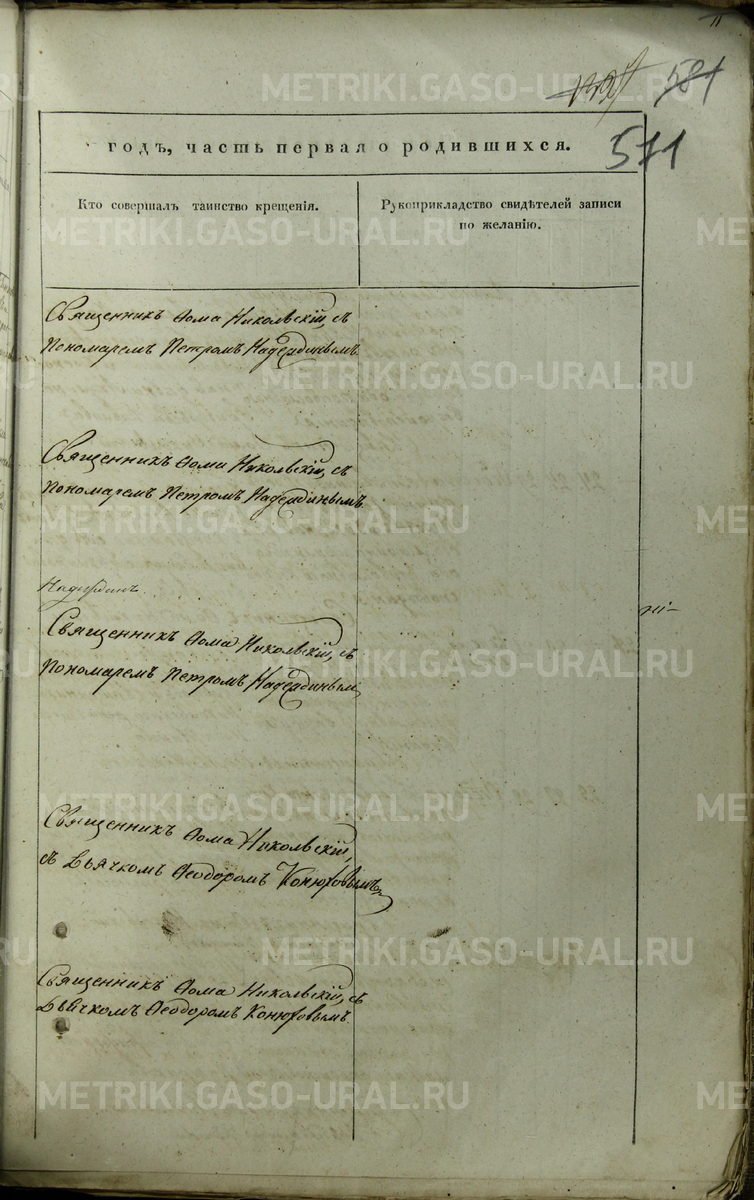 581
571
годъ, часть первая о родившихся.
Кто совершалъ таинство крещенія.
Рукоприкладство свидѣтелей записи
по желанію.
Священникъ Ѳома Никольскій, съ
Пономаремъ Петромъ Надеждинымъ.
Священникъ Ѳома Никольскій, съ
Пономаремъ Петромъ Надеждинымъ.
Священникъ Ѳома Никольскій, съ
Пономаремъ Петромъ Надеждинымъ
Священникъ Ѳома Никольскій,
съ Дьячкомъ Ѳеодоромъ Конюховымъ.
Священникъ Ѳома Никольскій, съ
Дьячкомъ Ѳеодоромъ Конюховымъ.
METRIKI.GASO-URAL.RU